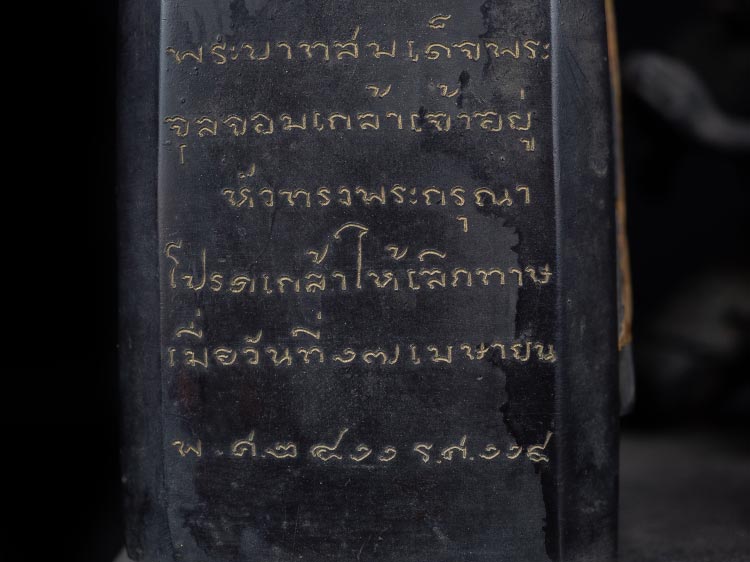 พระบาทสมเด็จพระ
จุลจอมเกล้าเจ้าอยู่
หัวทรงพระกรุณา
โปรดเกล้าให้เลิกทาษ
เมื่อวันที่ ๑๗ เมษายน
พ.ศ.๒๔๑๑ ร.ศ.๑๑๔